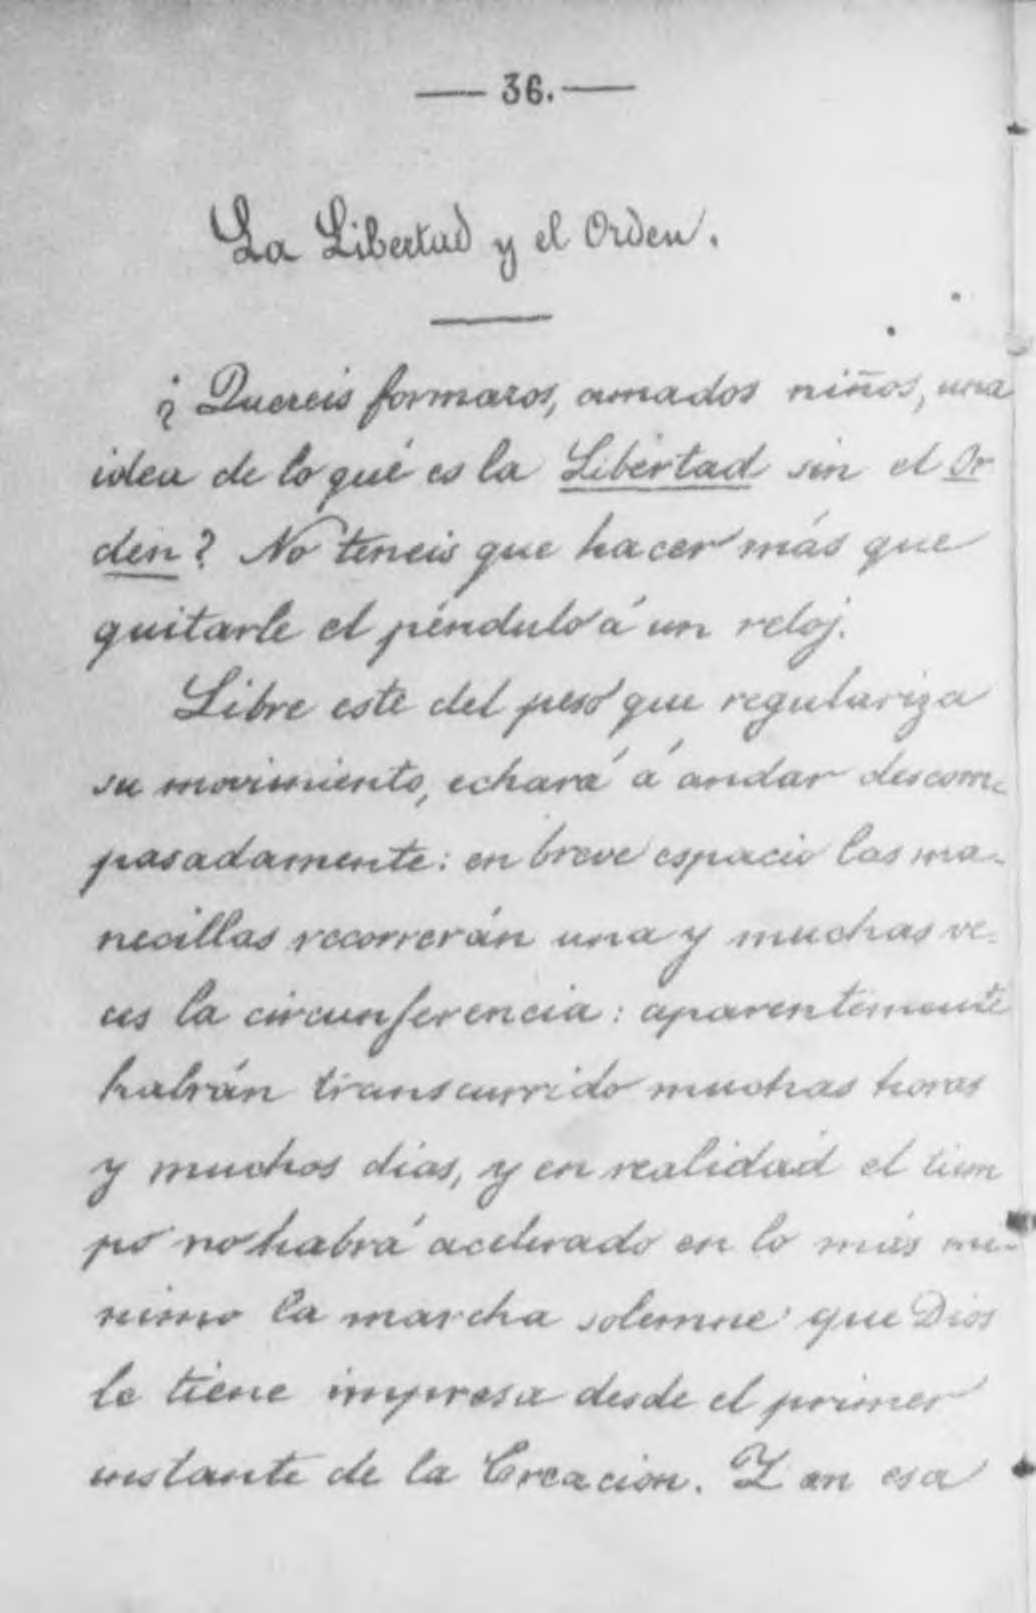 — 36. —
La Libertad y el Orden.
¿Quereis formaros, amados niños, una
idea de lo que es la Libertad sin el Or
den? No teneis que hacer más que
quitarle el péndulo á un reloj.
Libre este del peso que regulariza
su movimiento, echará á andar descom-
pasadamente: en breve espacio las ma-
necillas recorrerán una y muchas ve-
ces la circunferencia: aparentemente
habrán transcurrido muchas horas
y muchos dias, y en realidad el tiem
po no habrá acelerado en lo más mi-
nimo la marcha solemne que Dios
le tiene impresa desde el primer
instante de la Creacion. Y en esa